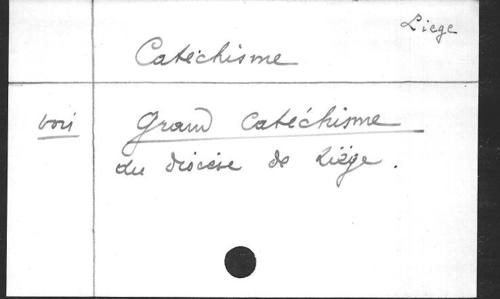 Liege
Catéchisme
voir Grand Catéchisme
du diocèse de Liège.